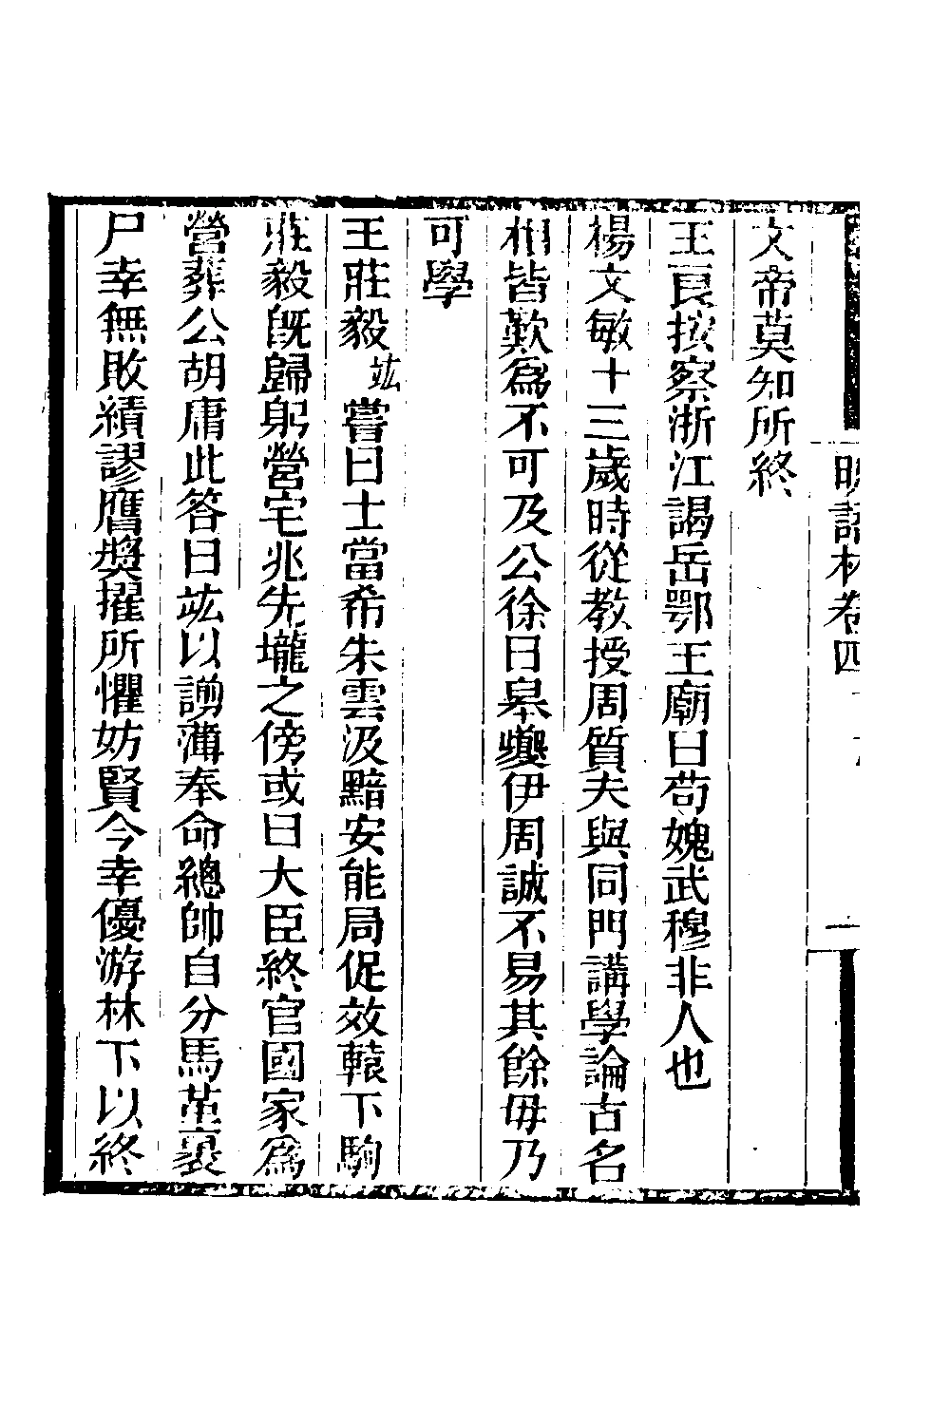 文帝莫知所終
王良按察浙江謁岳鄂王廟曰苟媿武穆非人也
楊文敏十三歲時從教授周質夫與同門講學論古名
相皆歎爲不可及公徐曰皋夔伊周誠不易其餘毋乃
可學
王莊毅竑嘗曰士當希朱雲汲黯安能局促效轅下駒
莊毅旣歸躬營宅兆先壠之傍或曰大臣終官國家爲
營葬公胡庸此答曰竑以謭薄奉命總帥自分馬革裹
尸幸無敗績謬膺奬擢所懼妨賢今幸優游林下以終
卷四